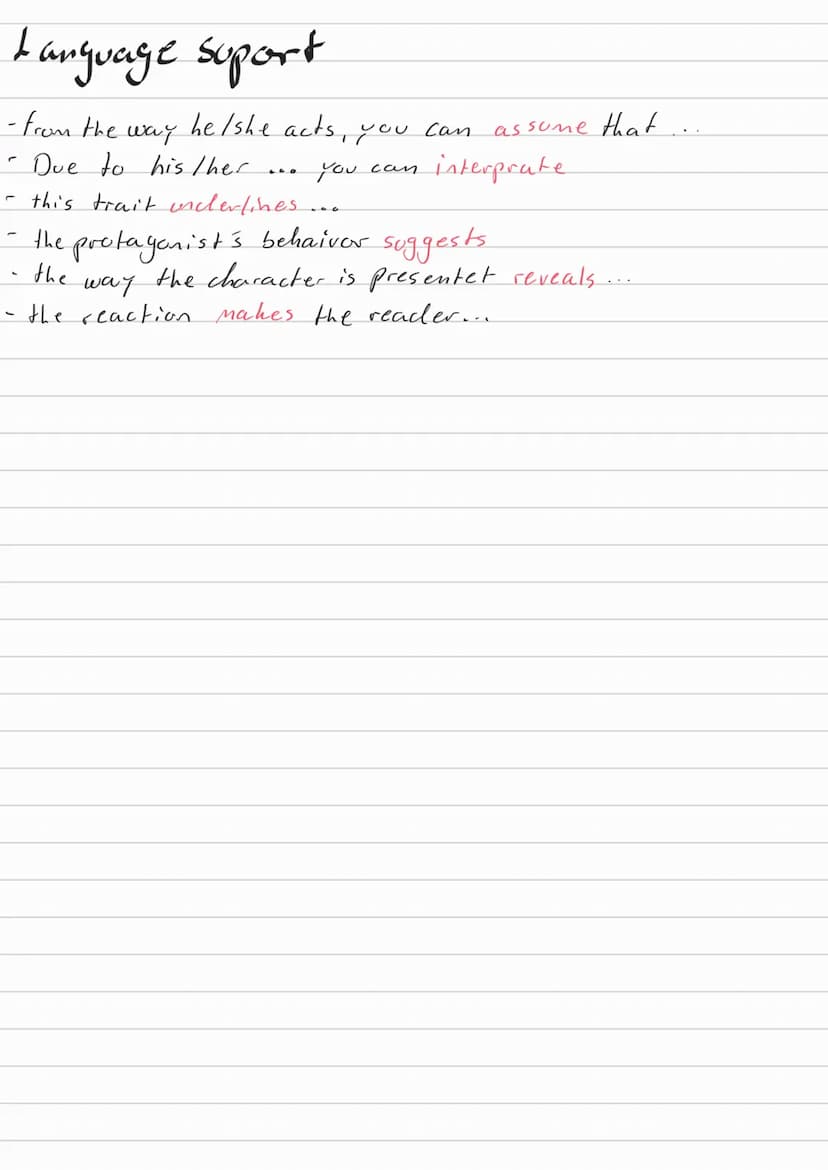 Language suport
- from the way he/she acts, you can assume that ...
- Due to his/her ... you can interprate
- this trait underlines ...
- the protagonist's behaivor suggests
- the way the character is presentet reveals ...
- the reaction makes the reader...